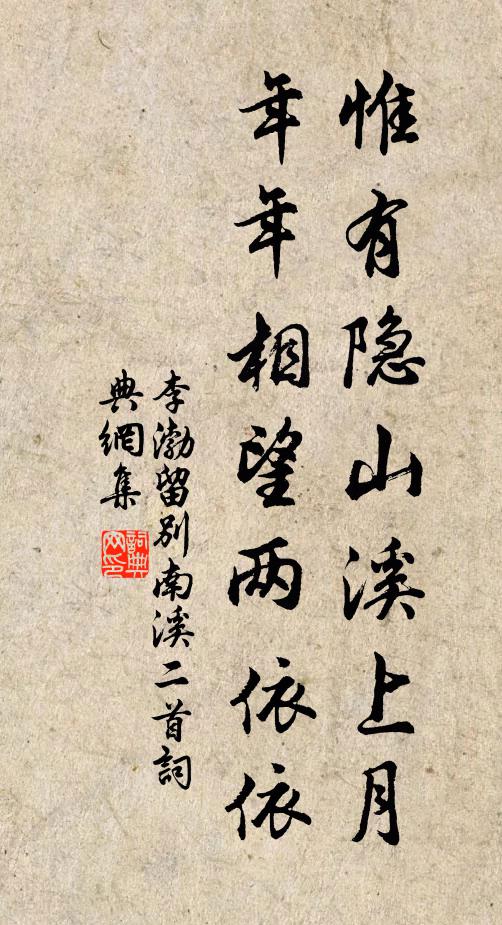 惟有隐山溪上月
年年相望两依依
李渤留别南溪二首詞
典網集
詞典
网印